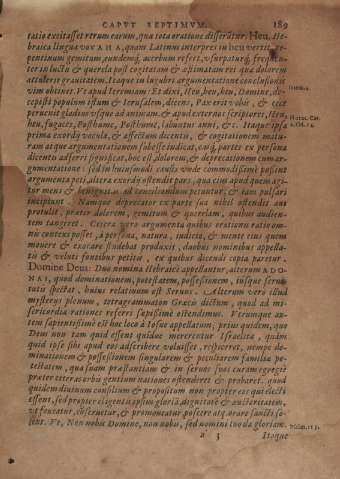 CAPUT SEPTIMUM. 189
ratio excitasset rerum earum, qua tota oratione disseratur. Heu, He-
braica lingua VOVAHA, quam Latinus interpres in heu vertit, re-
pentinum gemitum, eundemq́; acerbum refert, vsurpaturq́; frequen-
ter in luctu & querela post cogitatam & æstimatam rei quæ dolorem
attulerit grauitatem. Itaque in lugubri argumentatione conclusionis
vim obtinet. Vt apud Ieremiam: Et dixi, Heu, heu, heu, Domine, de-
cepisti populum istum & Ierusalem, dicens, Pax erit vobis, & ecce
peruenit gladius vsque ad animam. & apud externos scriptores, Heu,
heu, fugaces, Posthume, Posthume, labuntur anni, &c. Itaque ipsa
prima exordij vocula, & affectum dicentis, & cogitationem matu-
ram atque argumentationem subesse indicat, easq́; partes ex persona
dicentis adferri significat, hoc est dolorem, & deprecationem cum ar-
gumentatione: sed in huiusmodi causis vnde commodissimè possent
argumenta peti, altera exordij ostendit pars, qua cùm apud quem ari-
tur mens & benignitas ad conciliandum petuntur, & iam pulsari
incipiunt. Namque deprecator ex parte sua nihil ostendit aut
protulit, præter dolorem, gemitum & querelam, quibus audien-
tem tangeret. Cetera verò argumenta quibus orationis ratio om-
nis contexi posset, à persona, natura, indicio, & mente eius quem
mouere & exorare studebat produxit, duobus nominibus appella-
tis & veluti fontibus petitis, ex quibus dicendi copia paretur.
Domine Deus: Duo nomina Hebraicè appellantur, alterum ADO-
NAI, quod dominationem, potestatem, possessionem, iusque serui-
tutis spectat, huius relationem est Seruus. Alterum verò illud
mysterij plenum, tetragrammaton Græcis dictum, quod ad mi-
sericordia rationes referri sapissimè ostendimus. Vtrumque au-
tem sapientissimè est hoc loco à Iosue appellatum, prius quidem, quo
Deus non tam quid essent quidue mererentur Israelitæ, quàm
quid ipse sibi apud eos adscribere voluisset, respiceret, nempe do-
minationem & possessionem singularem & peculiarem familia pe-
tititam, qua suam præstantiam & in seruos suos curam egregiè
præter ceteras orbis gentium nationes ostenderet & probaret. quod
quidem diuinum consilium & propositum non propter eos qui electi
essent, sed propter eligentis ipsius gloriã, dignitatẽ & auctoritatem,
vt foueatur, conseruetur, & promoueatur poscere atq; orare sancti so-
lent. Vt, Non nobis Domine, non nobis, sed nomini tuo da gloriam.
Psalm. 113.
a 3 Itaque